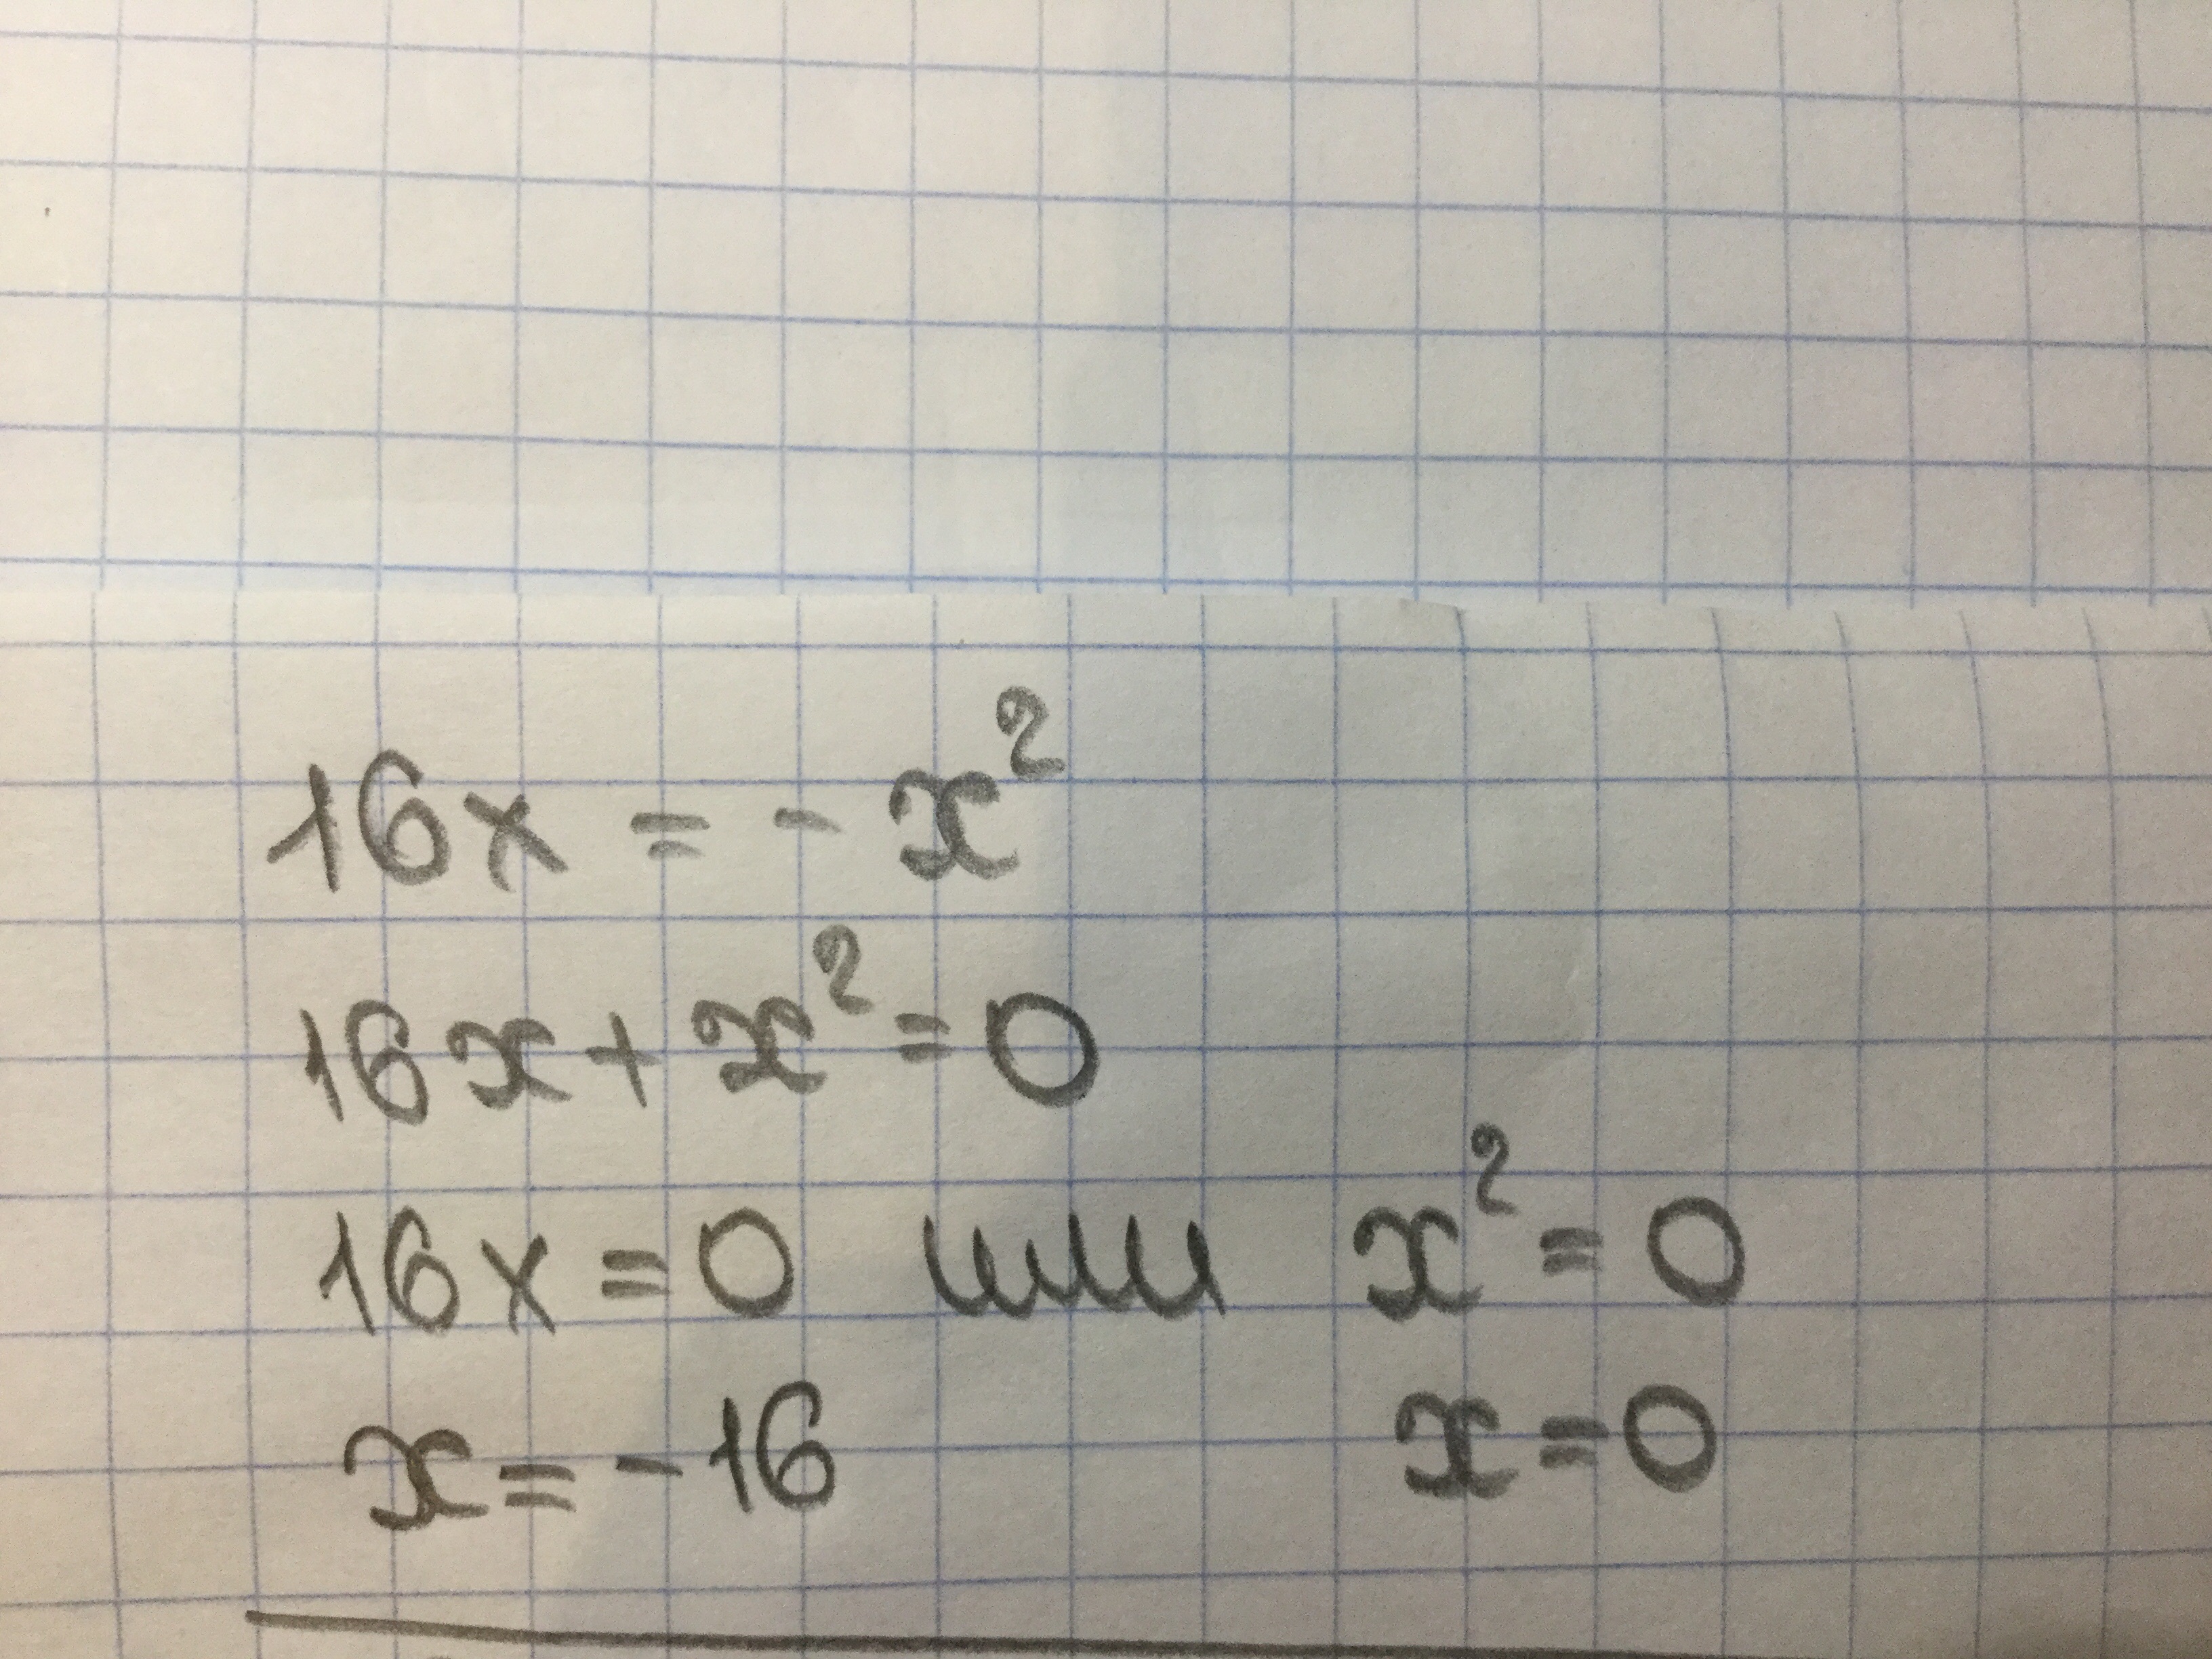 16x = - x²
16x + x² = 0
16x = 0 или x² = 0
x = - 16 x = 0